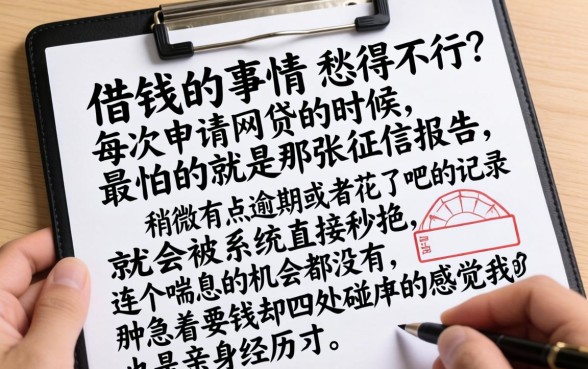 借钱的事情 愁得不行？
每次申请网贷的时候，
最怕的就是那张征信报告，
稍微有点逾期或者花了吧的记录
就会被系统直接秒拒，
连个喘息的机会都没有，
种急着要钱却四处碰库的感觉我
也是亲身经历寸。